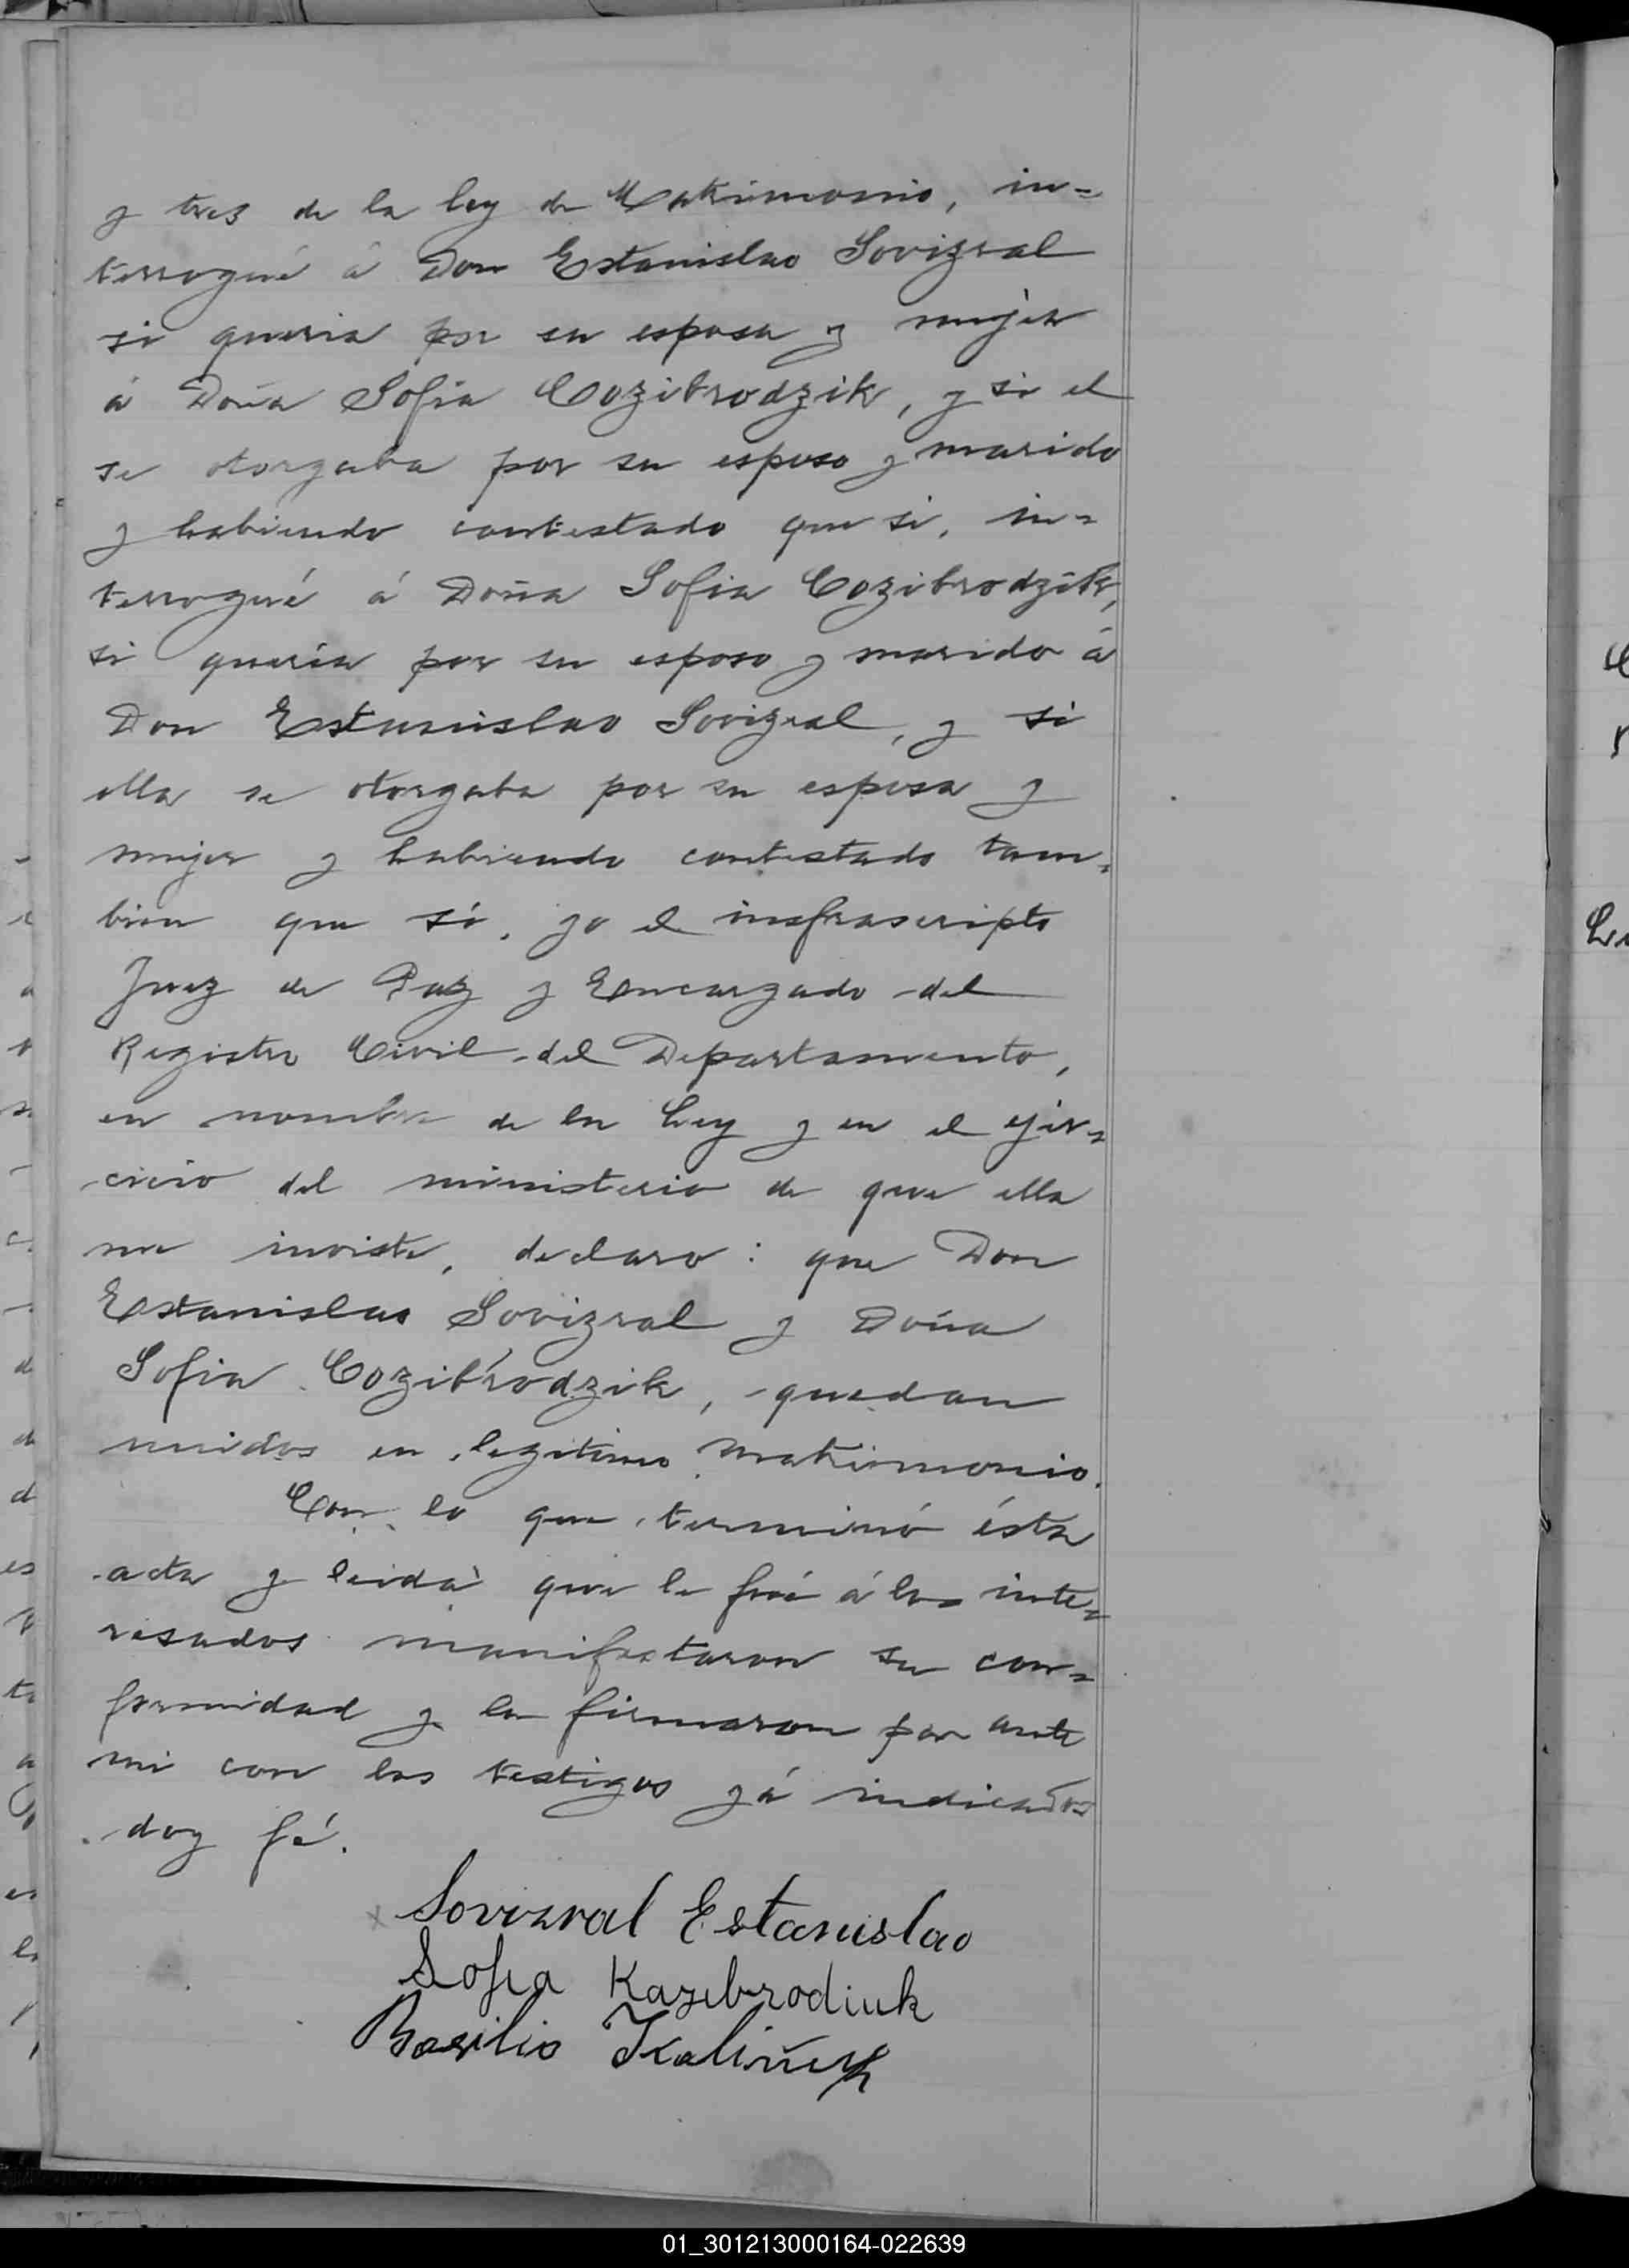 y tres de la ley de Matrimonio, in=
terrogué á Don Estanislao Sovizral
si queria por su esposa y mujer
á Doña Sofia Cozibrodzik, y si el
se otorgaba por su esposo y marido
y habiendo contestado que si, in=
terrogué á Doña Sofia Cozibrodzik,
si quería por su esposo y marido á
Don Estanislao Sovizral, y si
ella se otorgaba por su esposa y
mujer y habiendo contestado tam=
bien que sí, yo el insfrascripto
Juez de Paz y Encargado del
Registro Civil del Departamento,
en nombre de la Ley y en el ejer=
cicio del ministerio de que ella
me inviste, declaro: que Don
Estanislao Sovizral y Doña
Sofia Cozibrodzik, quedan
unidos en legitimo matrimonio.
Con lo que terminó ésta
acta y leida que le fué á los inte=
resados manifestaron su con=
formidad y la firmaron por ante
mi con los testigos yá indicados
doy fé.
Sovizral Estanislao
Sofia Kazibrodiuk
Basilio
01_301213000164-022639